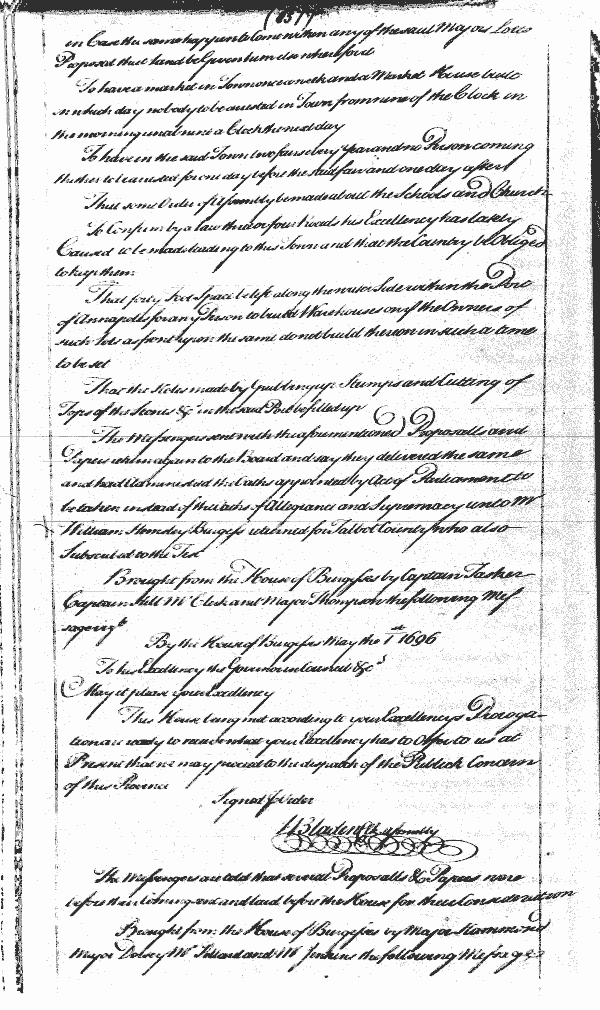 (837)
in Case the same happen to Come within any of the said Majors Lotts
Proposal that Land be Given him elsewhere for it
To have a market in Town once a week and a Market House built
in which day nobody to be arrested in Town from nine of the Clock in
the morning untill nine a Clock the next day
To have in the said Town two fairs every year and no Person coming
thither to be arrested for one day before the said fair and one day after
That some Order of Assembly be made about the Schools and Church
To Confirm by a law three or four Roads his Excellency has lately
Caused to be made leading to this Town and that the Country be Obliged
to keep them
That forty foot Space be left along the water Side within the Port
of Annapolis for any Person to build Warehouses on if the Owners of
such lots as front upon the same do not build thereon in such a time
to be set
That the Holes made by Grubbing up Stumps and Cutting of
Tops of the Trees &c in the said Port be filled up
The Messengers sent with the aforementioned Proposalls and
Papers return again to the Board and say they delivered the same
and had Administred the Oaths appointed by Act of Parliament to
be taken instead of the Oaths of Allegiance and Supremacy unto Mr
William Hemsley Burgess returned for Talbot County who also
Subscribed to the Test
Brought from the House of Burgesses by Captain Tasker
Captain Hill Mr Clark and Major Thompson the following Mes
sage vizt
By the House of Burgesses May the 1st 1696
To his Excellency the Governor in Councill &ca
May it please your Excellency
This House being met according to your Excellencys Proroga-
tion are ready to receive what your Excellency has to Offer to us at
Present that we may proceed to the dispatch of the Publick Concern
of this Province
Signed p Order
W Bladen Cl Assembly
The Messengers are told that several Proposalls & Papers were
before their coming sent and laid before the House for their Consideration
Brought from the House of Burgesses by Major Hammond
Major Dorsey Mr and Mr Jenkins the following Message